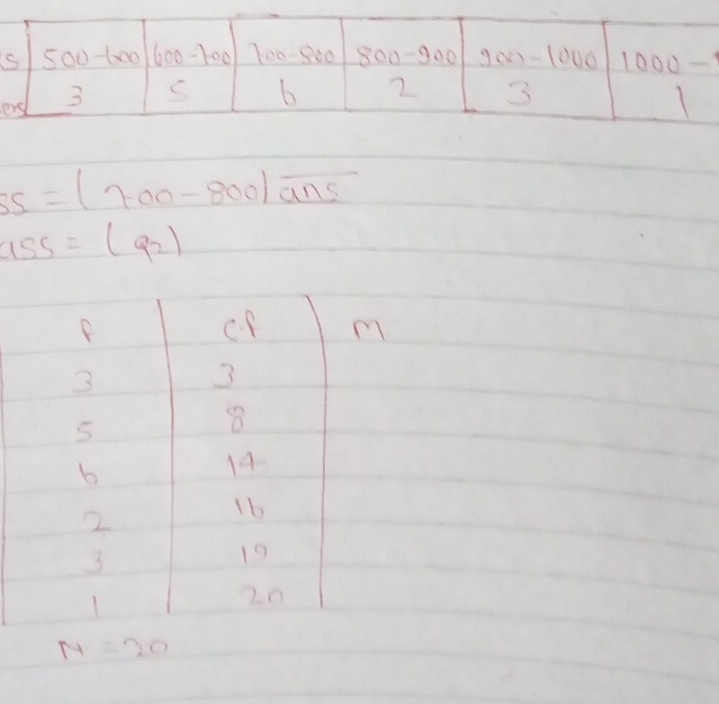 s 500-600 600-700 700-800 800-900 900-1000 1000-
ers 3 5 6 2 3 1
ss = (700-800) ans
ass = (Q2)
f c.f m
3 3
5 8
6 14
2 16
3 19
1 20
N = 20